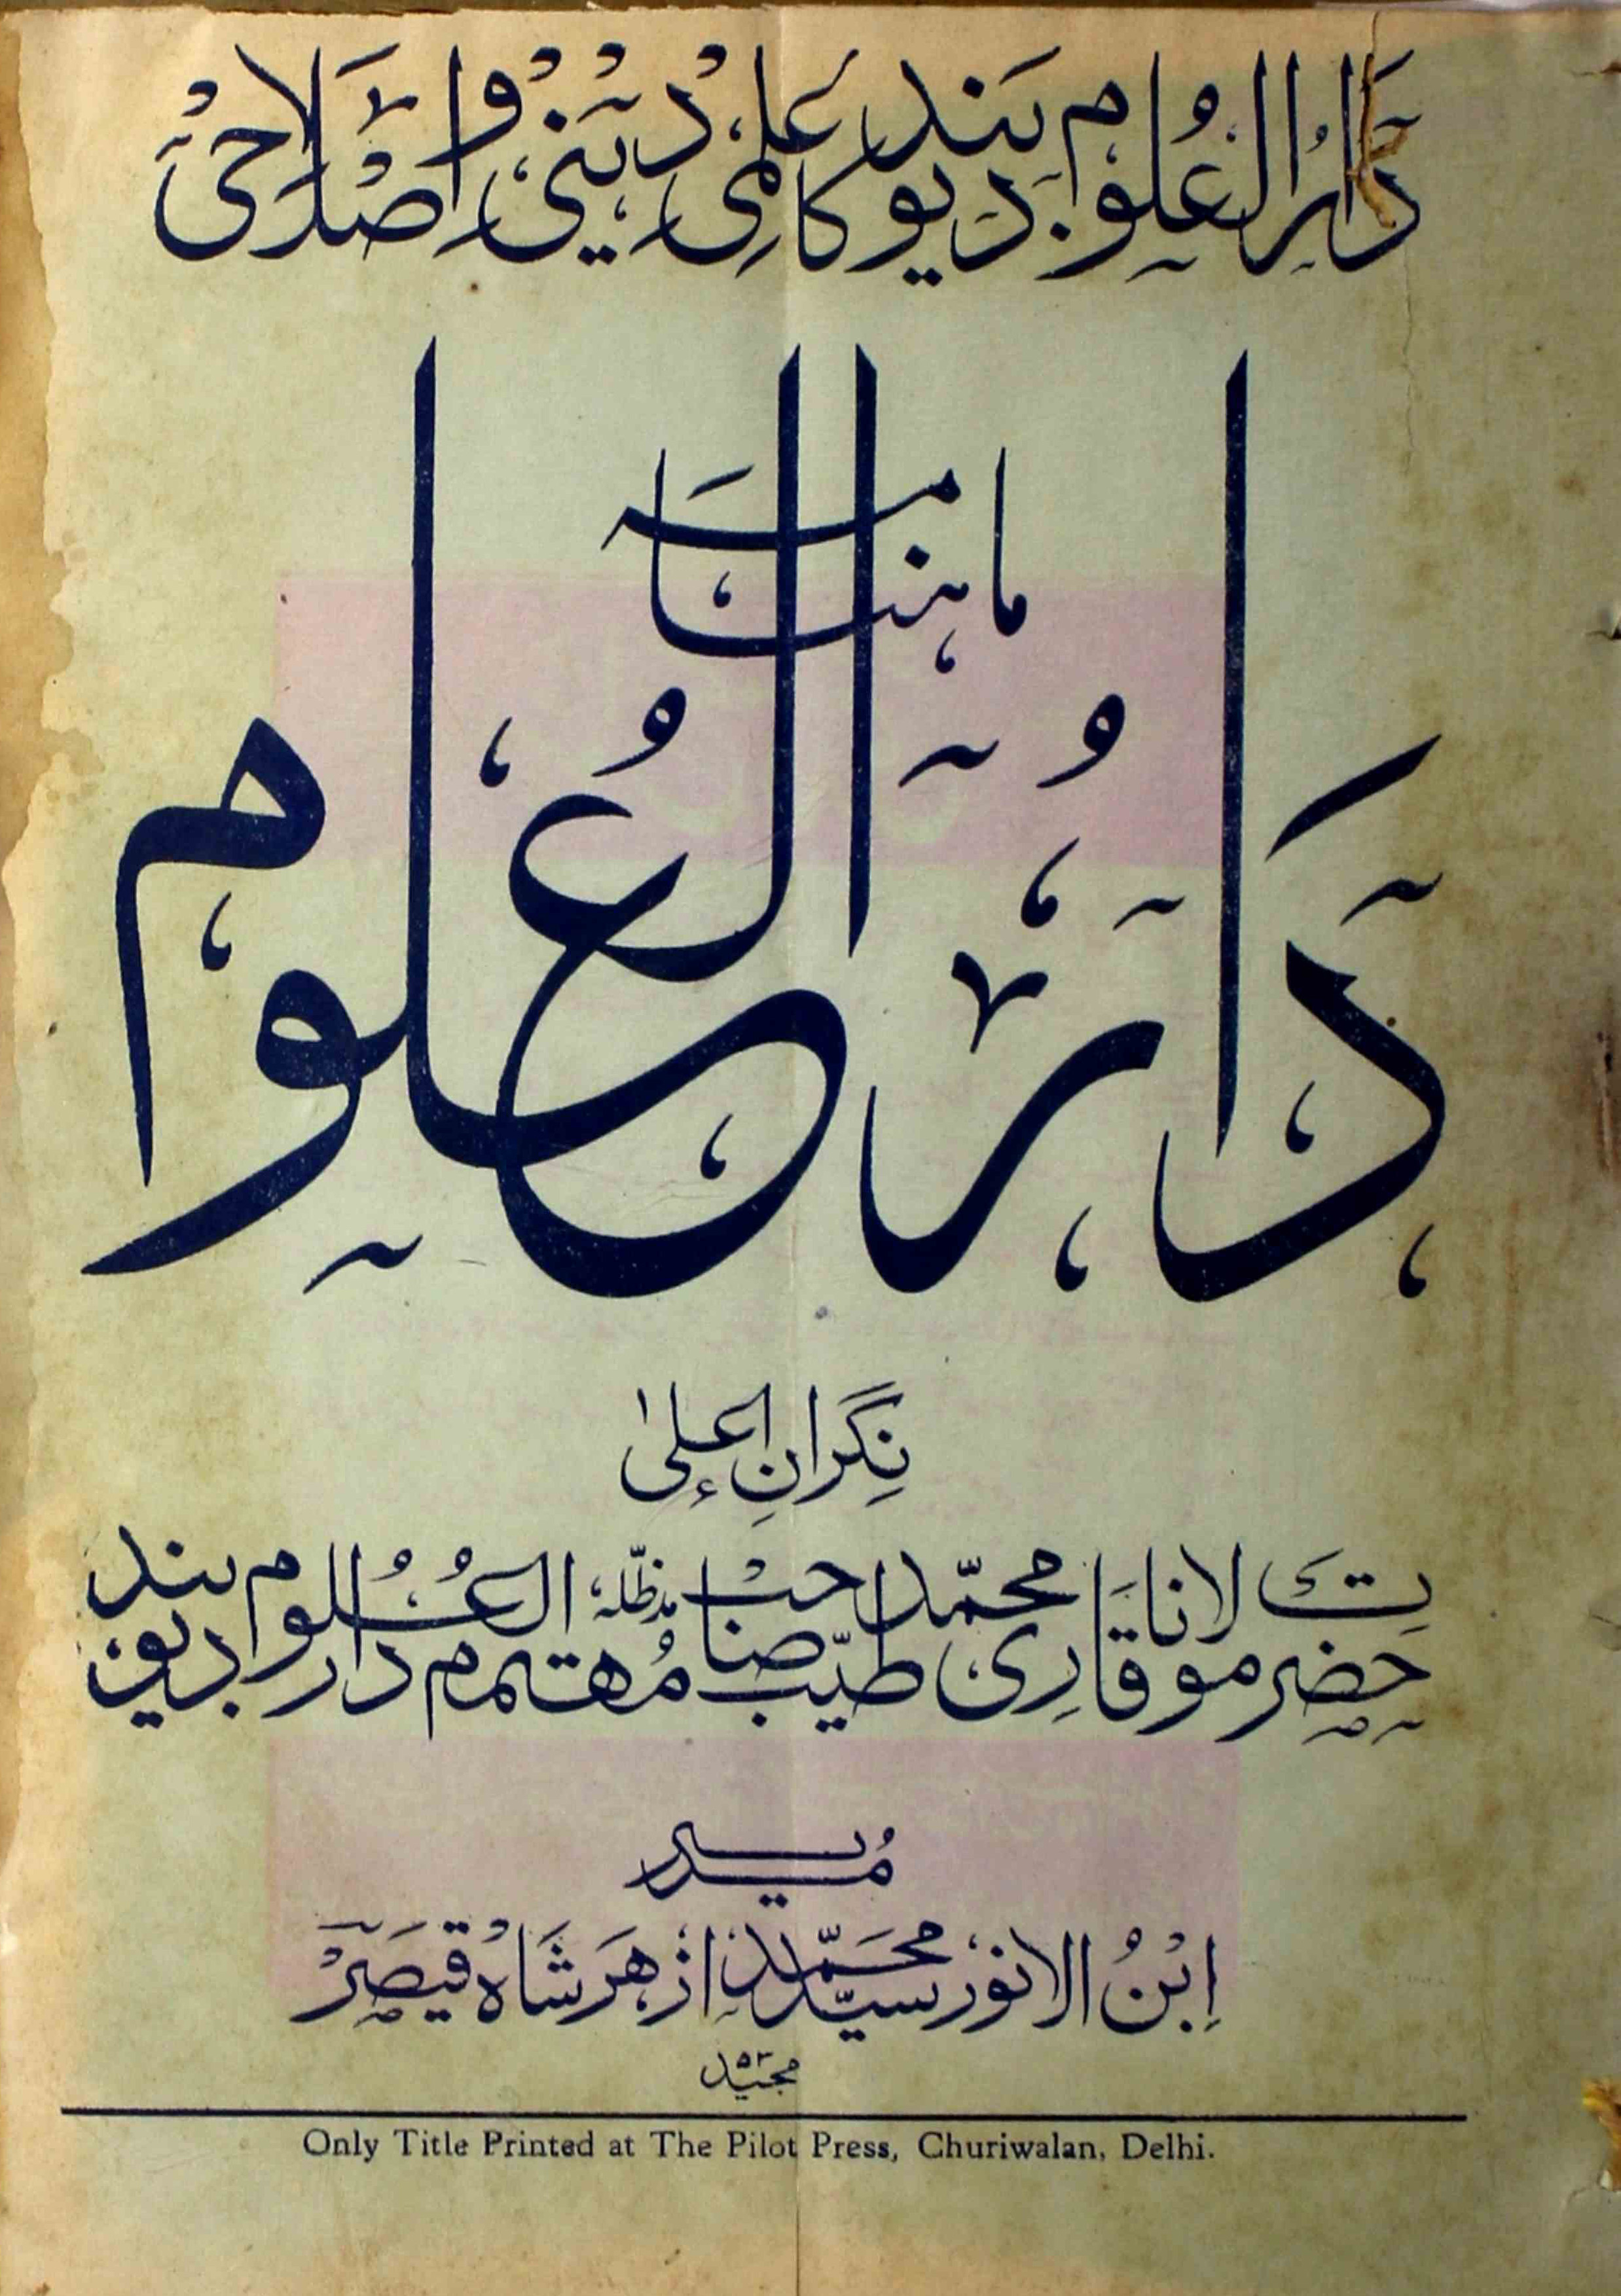 دَارُالعُلوم دیوبَند کا عِلمی دِینی و اِصْلَاحیْ
ماہنامَہ
دَارُالعُلوم
نِگرانِ اعلیٰ
حضرتْ مولانا قَارِی محمّد طیّب صاحبْ مدظلّہٗ مُہتمم دارالعُلُوم دیوبند
مُدیر
اِبْنُ الانوَر سیّد محَمّد ازہَر شَاہْ قیصَرْ
مجید ۵۳
Only Title Printed at The Pilot Press, Churiwalan, Delhi.